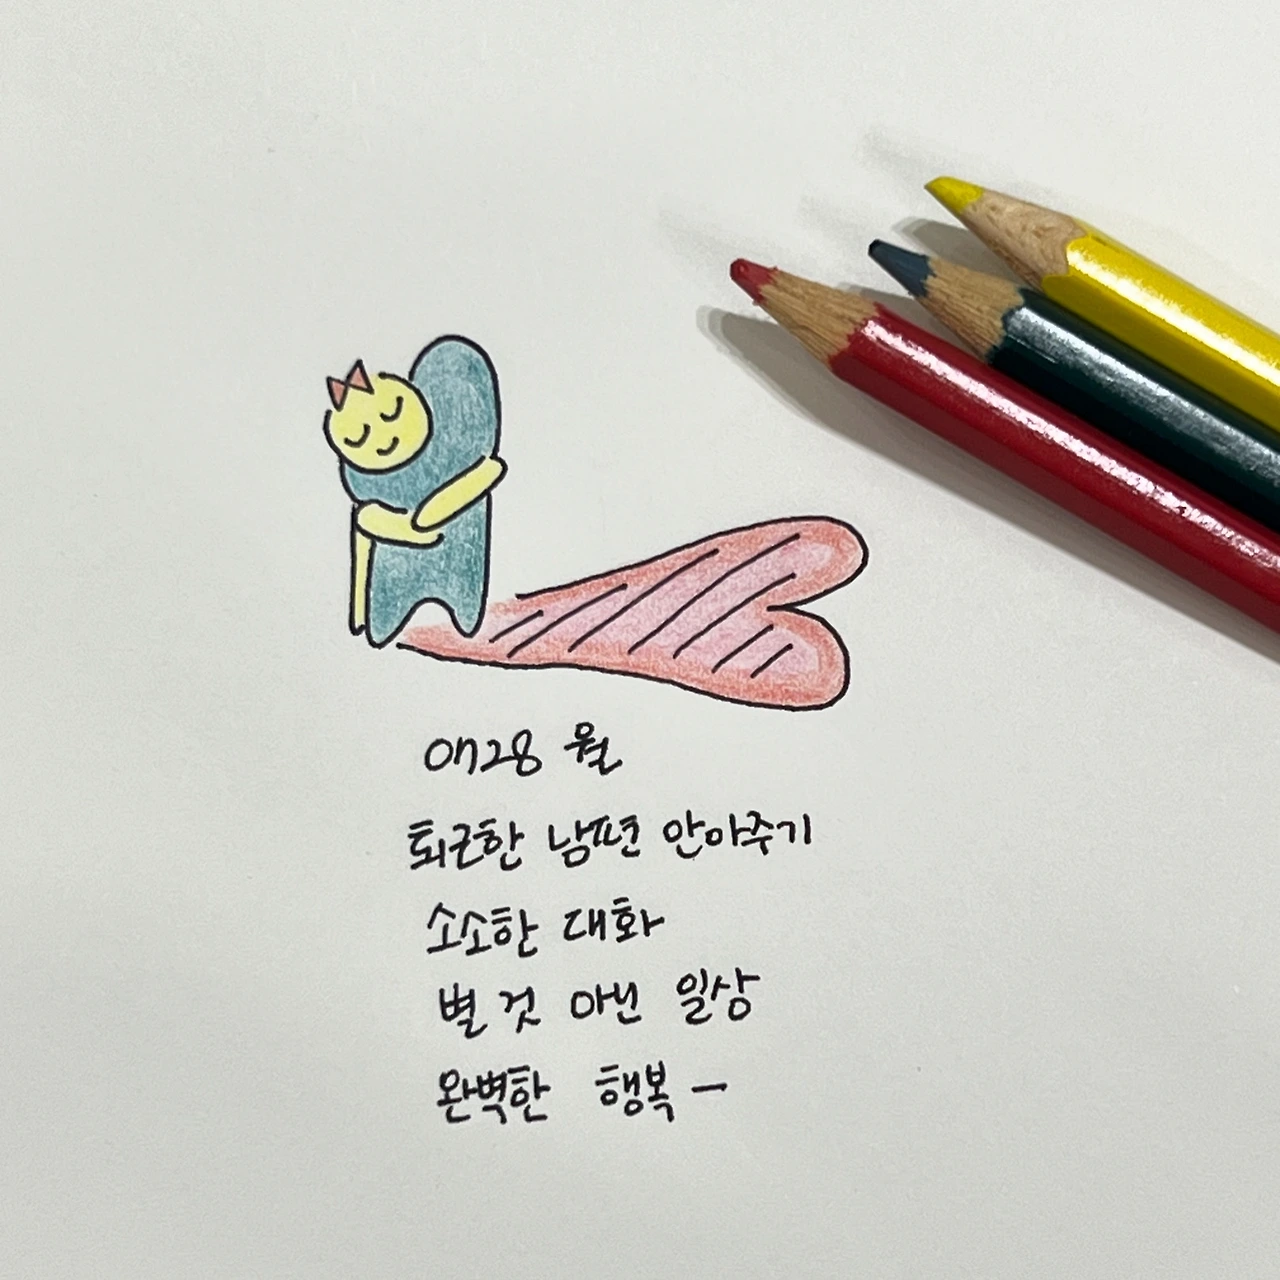 0728 월
퇴근한 남편 안아주기
소소한 대화
별 것 아닌 일상
완벽한 행복 -